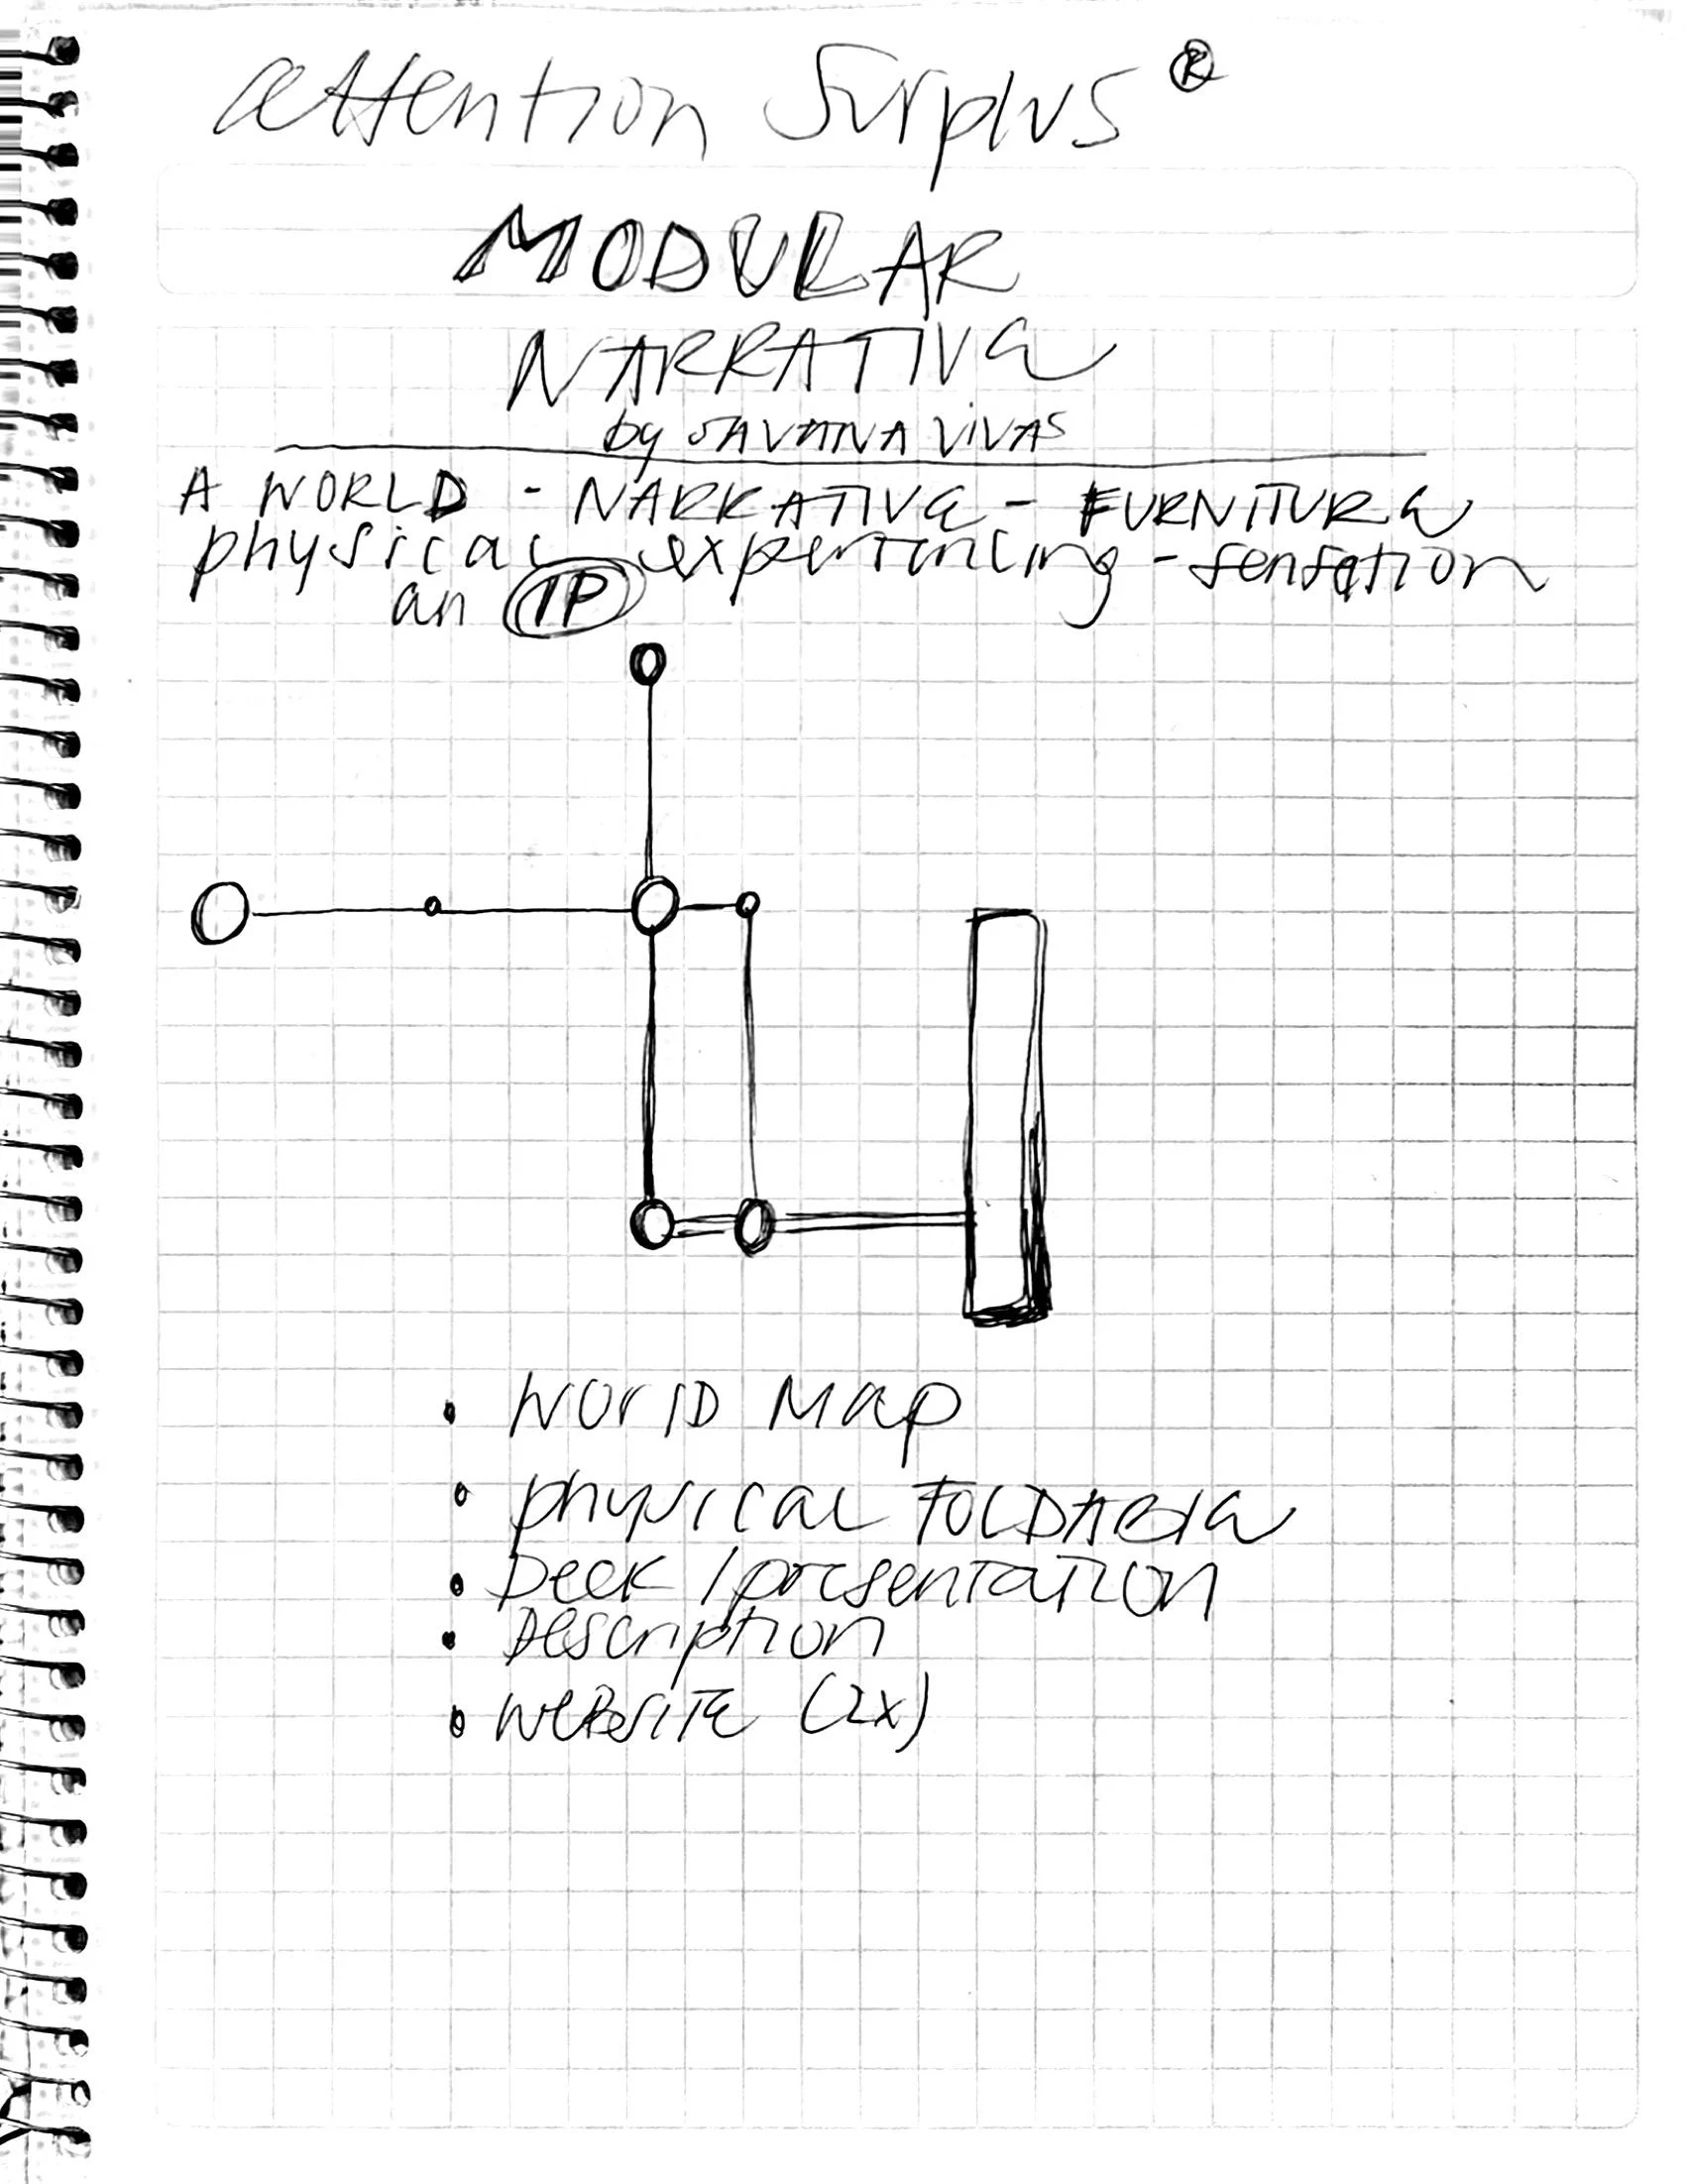 attention Surplus ®
MODULAR
NARRATIVE
by SAVANNA VIVAS
A WORLD - NARRATIVE - FURNITURE
physical experiencing - sensation
an IP
• World Map
• physical FOLDABLE
• Deck / presentation
• Description
• Website (2x)